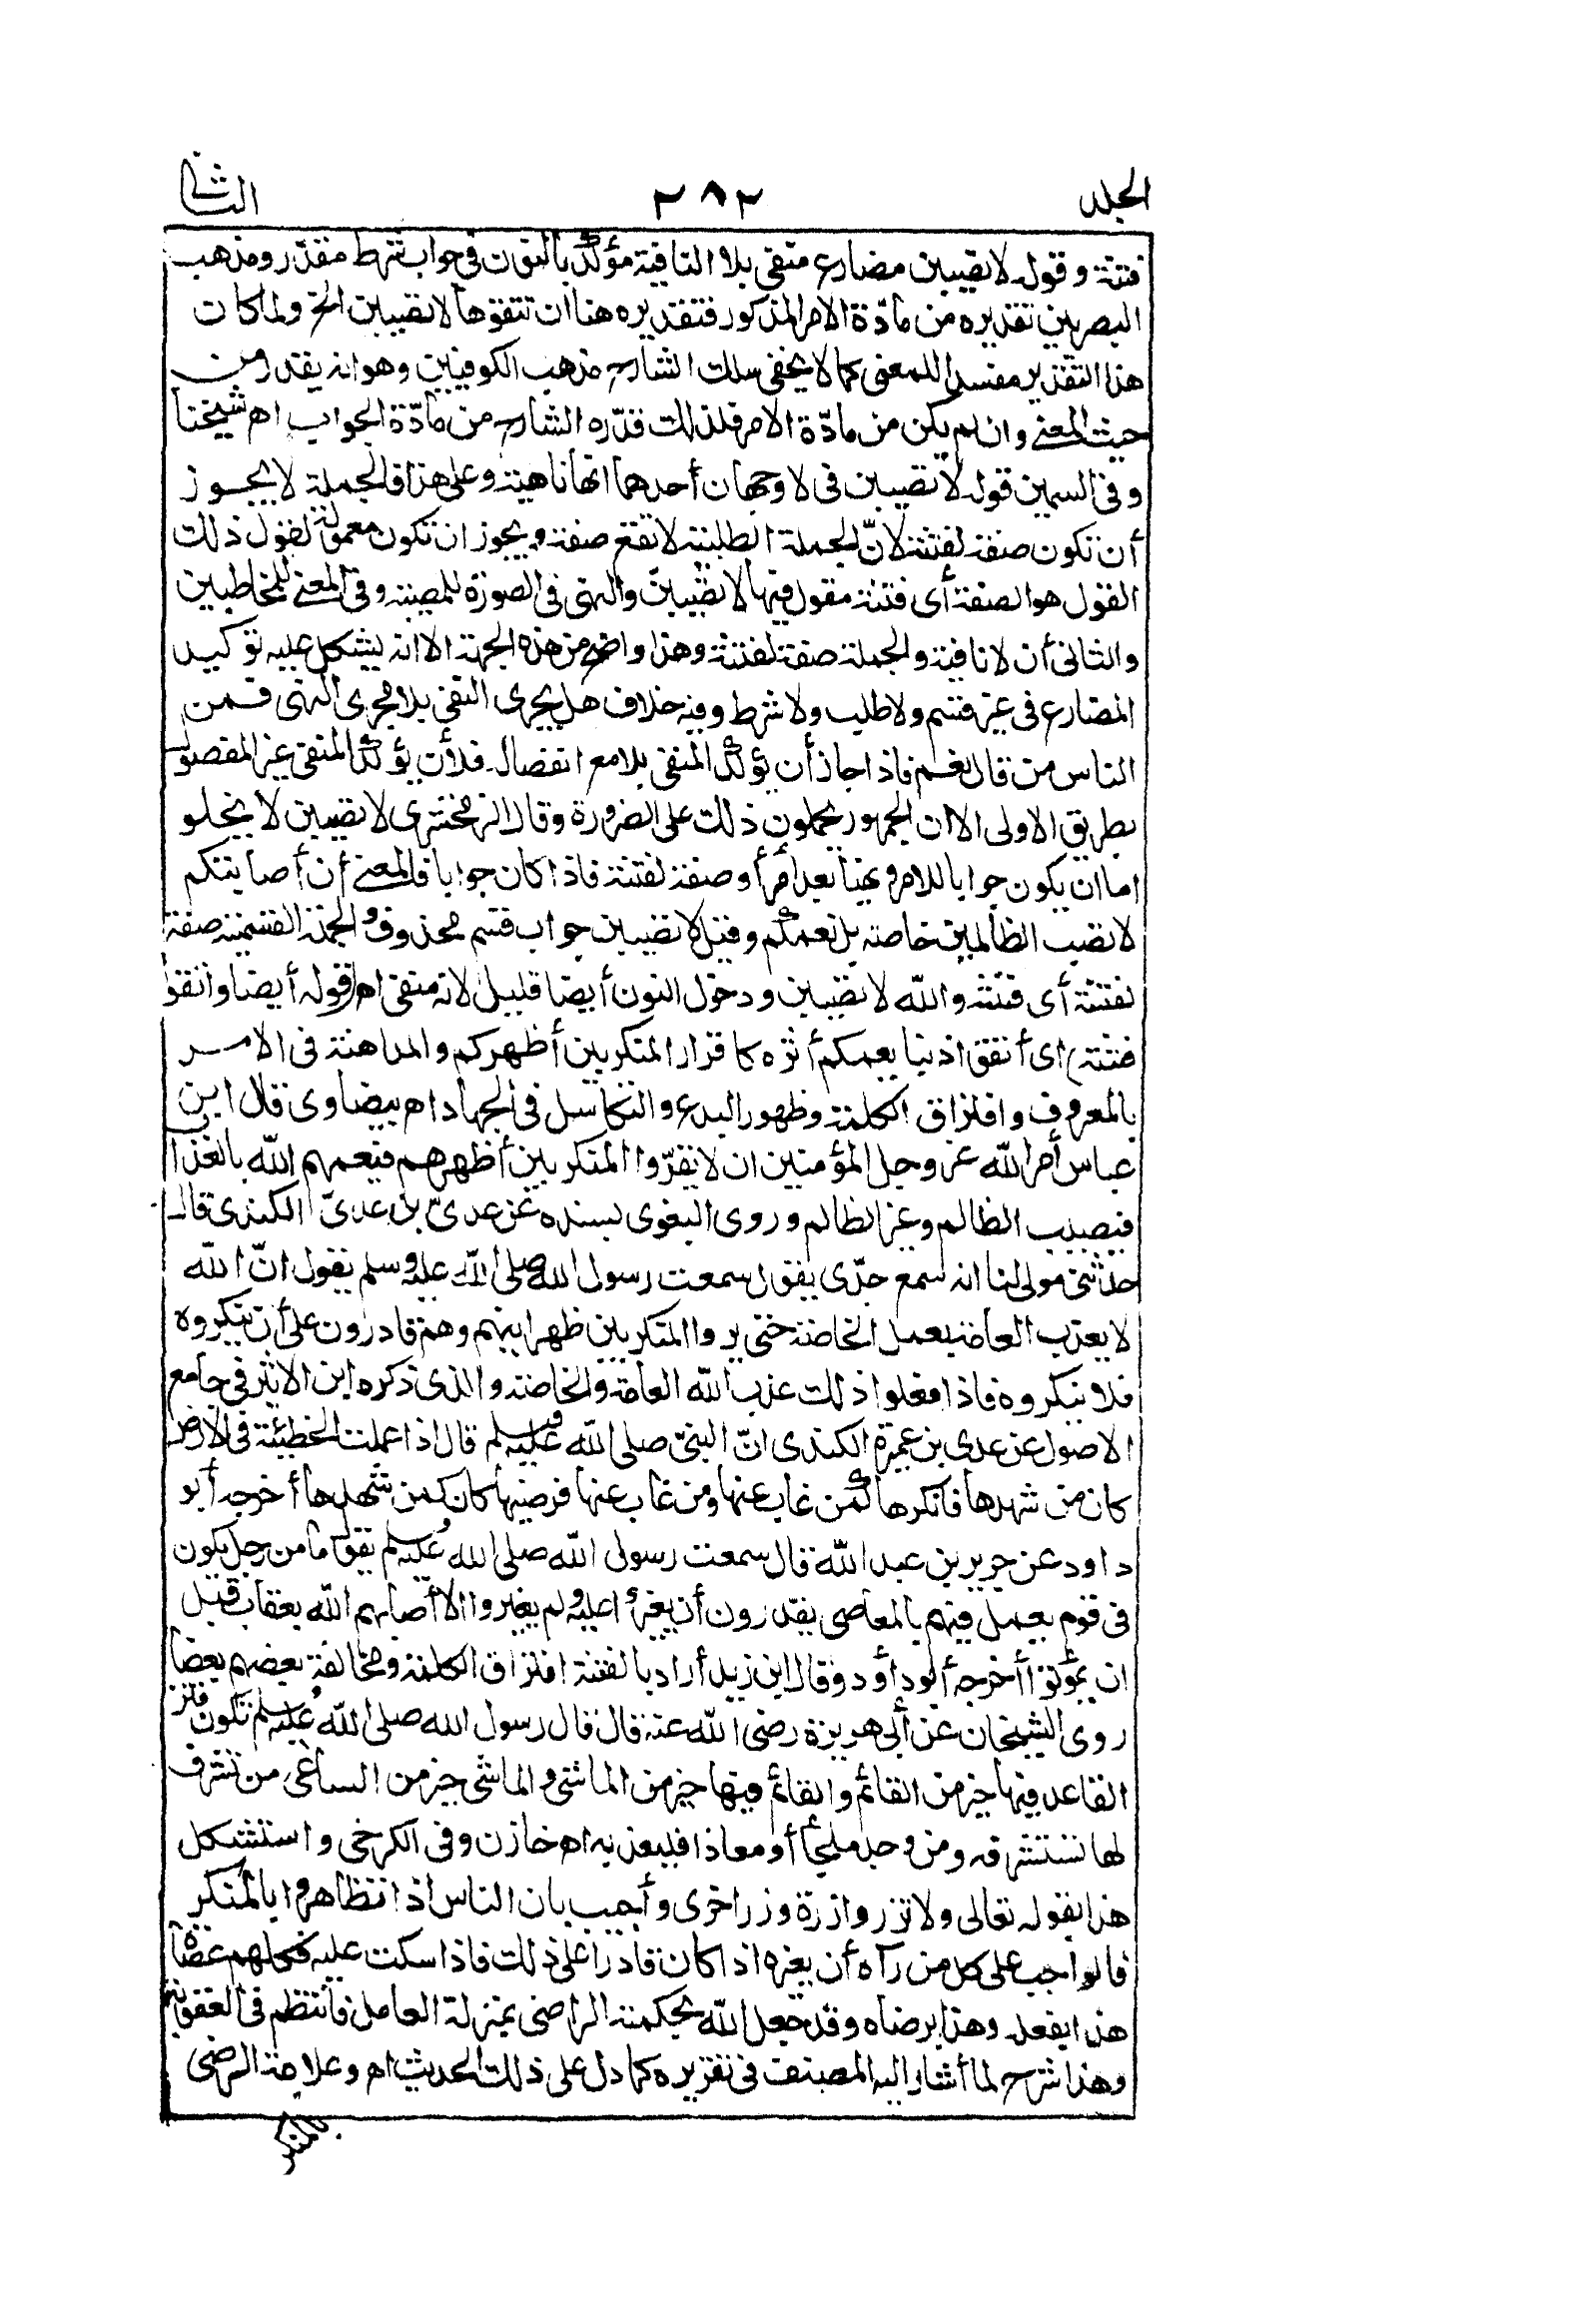 الجلد ٢٨٢ الثاني
فتنة وقوله لا تصيبن مضارع منفي بلا النافية مؤكد بالنون في جواب شرط مقدّر ومذهب
البصريين تقديره من مادّة الامر المذكور فتقديره هنا ان تتقوها لا تصيبن الخ ولما كان
هذا التقدير مفسدا للمعنى كما لا يخفى سلك الشارح مذهب الكوفيين وهو انه يقدر من
حيث المعنى وان لم يكن من مادّة الامر فلذلك قدّره الشارح من مادّة الجواب اه شيخنا
وفي السمين قوله لا تصيبن في لا وجهان أحدهما انها ناهية وعلى هذا فالجملة لا يجوز
أن تكون صفة لفتنة لانّ الجملة الطلبية لا تقع صفة ويجوز ان تكون معمولة لقول ذلك
القول هو الصفة أى فتنة مقول فيها لا تصيبنّ والنهى في الصورة للمصيبة وفي المعنى للمخاطبين
والثانى أن لا نافية والجملة صفة لفتنة وهذا واضح من هذه الجهة الا انه يشكل عليه توكيد
المضارع في غير قسم ولا طلب ولا شرط وفيه خلاف هل يجرى النفي بلا مجرى النهى فمن
الناس من قال نعم فاذا جاز أن يؤكد المنفي بلا مع انفصال فلأن يؤكد المنفي غير المفصول
بطريق الاولى الا ان الجمهور يحملون ذلك على الضرورة وقال الزمخشرى لا تصيبن لا يخلو
اما ان يكون جوابا للامر ونهيا بعد أمر أو صفة لفتنة فاذا كان جوابا فالمعنى أن أصابتكم
لا تصيب الظالمين خاصة بل تعمكم وقيل لا تصيبن جواب قسم محذوف والجملة القسمية صفة
لفتنة أى فتنة والله لا تصيبن ودخول النون أيضا قليل لانه منفي اه (قوله أيضا واتقوا
فتنة) اى أتقوا ذنبا يعمكم أثره كاقرار المنكر بين أظهركم والمداهنة في الامر
بالمعروف وافتراق الكلمة وظهور البدع والتكاسل في الجهاد اه بيضاوى قال ابن
عباس أمر الله عز وجل المؤمنين ان لا يقرّوا المنكر بين أظهرهم فيعمهم الله بالعذاب
فيصيب الظالم وغير الظالم وروى البغوى بسنده عن عدىّ بن عدىّ الكندى قال
حدّثنى مولى لنا انه سمع جدّى يقول سمعت رسول الله صلى الله عليه وسلم يقول انّ الله
لا يعذب العامة بعمل الخاصة حتى يروا المنكر بين ظهرانيهم وهم قادرون على أن ينكروه
فلا ينكروه فاذا فعلوا ذلك عذب الله العامة والخاصة والذى ذكره ابن الاثير في جامع
الاصول عن عدى بن عميرة الكندى انّ النبىّ صلى الله عليه وسلم قال اذا عملت الخطيئة في الارض
كان من شهدها فأنكرها كمن غاب عنها ومن غاب عنها فرضيها كان كمن شهدها أخرجه أبو
داود عن جرير بن عبد الله قال سمعت رسول الله صلى الله عليه وسلم يقول ما من رجل يكون
فى قوم يعمل فيهم بالمعاصى يقدرون أن يغيروا عليه ولم يغيروا الا أصابهم الله بعقاب قبل
ان يموتوا أخرجه أبو داود وقال ابن زيد أراد بالفتنة افتراق الكلمة ومخالفة بعضهم بعضا
روى الشيخان عن أبى هريرة رضى الله عنه قال قال رسول الله صلى الله عليه وسلم تكون فتن
القاعد فيها خير من القائم والقائم فيها خير من الماشى والماشى خير من الساعى من تشرف
لها تستشرفه ومن وجد ملجأ أو معاذا فليعذ به اه خازن وفى الكرخى واستشكل
هذا بقوله تعالى ولا تزر وازرة وزر اخرى وأجيب بان الناس اذا تظاهروا بالمنكر
فالواجب على كل من رآه أن يغيره اذا كان قادرا على ذلك فاذا سكت عليه فكلهم عصاة
هذا بفعله وهذا برضاه وقد جعل الله بحكمته الراضى بمنزلة العامل فأنتظم فى العقوبة
وهذا شرح لما أشار اليه المصنف فى تقريره كما دل على ذلك الحديث اه وعلامة الرضى
بالمنكر